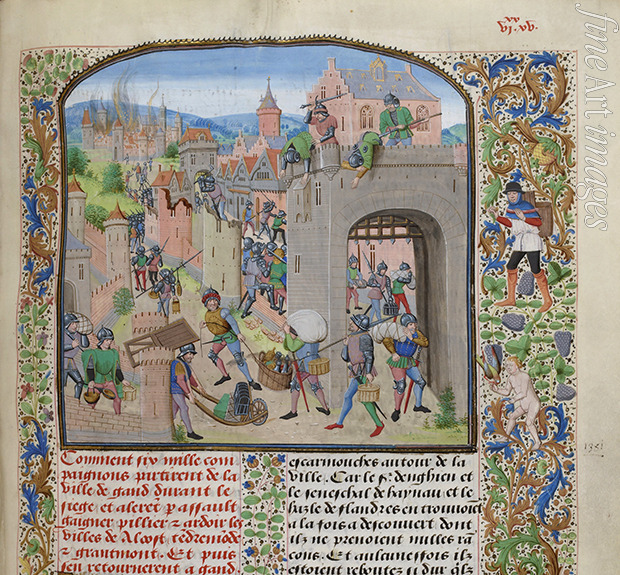 xx
vi.vv.
fine Art images
Comment six mille com
paignons partirent de la
ville de gand durant le
siege et alerēt par assault
gaigner pillier et ardoir les
villes de Alost tēdremōde
et grantmont. Et puis
sen retournerent a gand.
escarmouches autour de la
ville. Car le sr. denghien et
le seneschal de haynau et le
haze de flandres en trouuoiēt
a la fois a descouuert dont
ilz ne prenoient nulles rā
cons. Et aulcunesfois ilz
estoient reboutez si dur qlz
1381